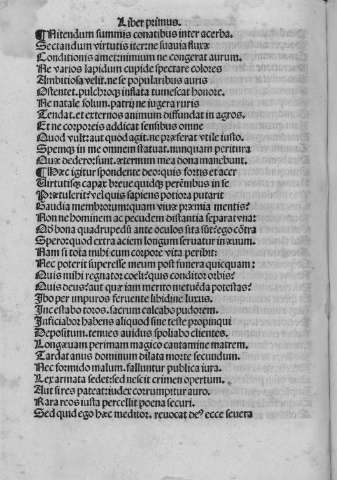 Liber primus.
¶Nitendum summis conatibus inter acerba.
Sectandum virtutis iter: ne suauia fluxæ
Conditionis amet: nimium ne congerat aurum.
Ne varios lapidum cupide spectare colores
Ambitiosa velit. ne se popularibus auris
Ostentet. pulchroq; inflata tumescat honore.
Ne natale solum. patrii ne iugera ruris
Tendat. et externos animum diffundat in agros.
Et ne corporeis addicat sensibus omne
Quod vult: aut quod agit. ne præferat vtile iusto.
Spemq; in me omnem statuat. nunquam peritura
Quæ dedero: sunt. æternum mea dona manebunt.
¶Hæc igitur spondente deo: quis fortis et acer
Virtutisq; capax breue quidq; perēnibus in se
Prætulerit: vel quis sapiens potiora putarit
Gaudia membrorum: quam viuæ præmia mentis?
Non ne hominem ac pecudem distantia separat vna:
Qđ bona quadrupedū ante oculos sita sūt: ego cōtra
Spero: quod extra aciem longum seruatur in æuum.
Nam si tota mihi cum corpore vita peribit:
Nec poterit superesse meum post funera quicquam:
Quis mihi regnator cœli: quis conditor orbis?
Quis deus: aut quæ iam merito metuēda potestas?
Ibo per impuros feruente libidine luxus.
Incestabo toros. sacrum calcabo pudorem.
Inficiabor habens aliquod sine teste propinqui
Depositum. tenues auidus spoliabo clientes.
Longæuam perimam magico cantamine matrem.
Tardat anus dominum dilata morte secundum.
Nec formido malum. falluntur publica iura.
Lex armata sedet: sed nescit crimen opertum.
Aut si res pateat: iudex corrumpitur auro.
Rara reos iusta percellit poena securi.
Sed quid ego hæc meditor. reuocat de⁹ ecce seuera